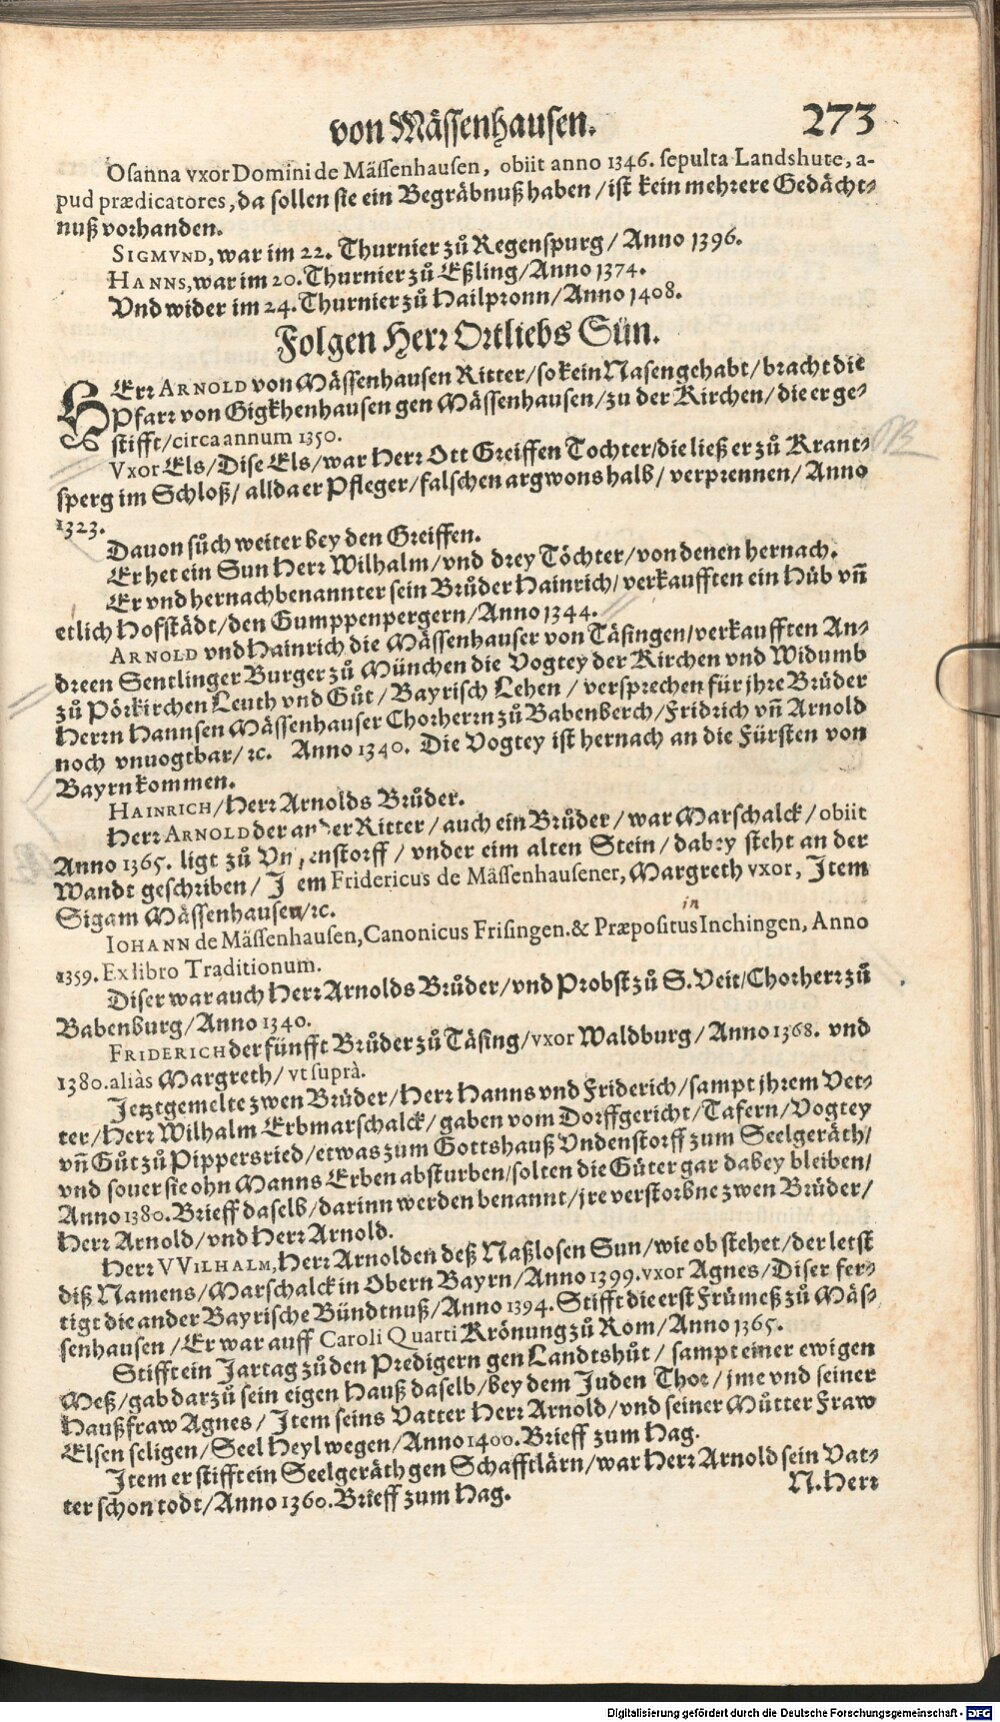 von Mässenhausen. 273
Osanna vxor Domini de Mässenhausen, obiit anno 1346. sepulta Landshute, a-
pud prædicatores, da sollen sie ein Begräbnuß haben / ist kein mehrere Gedächt-
nuß vorhanden.
SIGMVND, war im 22. Thurnier zů Regenspurg / Anno 1396.
HANNS, war im 20. Thurnier zů Eßling / Anno 1374.
Vnd wider im 24. Thurnier zů Hailpronn / Anno 1408.
Folgen Herr Ortliebs Sün.
HErr ARNOLD von Mässenhausen Ritter / so kein Nasen gehabt / bracht die
Pfarr von Gigkhenhausen gen Mässenhausen / zu der Kirchen / die er ge-
stifft / circa annum 1350.
Vxor Els / Dise Els / war Herr Ott Greiffen Tochter / die ließ er zů Krant-
sperg im Schloß / allda er Pfleger / falschen argwons halb / verprennen / Anno
1323.
Dauon sůch weiter bey den Greiffen.
Er het ein Sun Herr Wilhalm / vnd drey Töchter / von denen hernach.
Er vnd hernachbenannter sein Brůder Hainrich / verkaufften ein Hůb vñ
etlich Hofstädt / den Gumppenpergern / Anno 1344.
ARNOLD vnd Hainrich die Mässenhauser von Täsingen / verkaufften An-
dreen Sentlinger Burger zů München die Vogtey der Kirchen vnd Widumb
zů Pörkirchen Leuth vnd Gůt / Bayrisch Lehen / versprechen für jhre Brůder
Herrn Hannsen Mässenhauser Chorherrn zů Babenberch / Fridrich vñ Arnold
noch vnuogtbar / ꝛc. Anno 1340. Die Vogtey ist hernach an die Fürsten von
Bayrn kommen.
HAINRICH / Herr Arnolds Brůder.
Herr ARNOLD der ander Ritter / auch ein Brůder / war Marschalck / obiit
Anno 1365. ligt zů / vnder eim alten Stein / dabey steht an der
Wandt geschriben / Fridericus de Mässenhausener, Margreth vxor, Item
Sigam Mässenhausen / ꝛc.
in
IOHANN de Mässenhausen, Canonicus Frisingen. & Præpositus Inchingen, Anno
1359. Ex libro Traditionum.
Diser war auch Herr Arnolds Brůder / vnd Probst zů S. Veit / Chorherr zů
Babenburg / Anno 1340.
FRIDERICH der fünfft Brůder zů Täsing / vxor Waldburg / Anno 1368. vnd
1380. aliàs Margreth / vt suprà.
Jetztgemelte zwen Brüder / Herr Hanns vnd Friderich / sampt jhrem Vet-
ter / Herr Wilhalm Erbmarschalck / gaben vom Dorffgericht / Tafern / Vogtey
vñ Gůt zů Pippersried / etwas zum Gottshauß Vndenstorff zum Seelgeräth /
vnd souer sie ohn Manns Erben absturben / solten die Güter gar dabey bleiben /
Anno 1380. Brieff daselb / darinn werden benannt / jre verstorbne zwen Brüder /
Herr Arnold / vnd Herr Arnold.
Herr VVILHALM, Herr Arnolden deß Naßlosen Sun / wie ob stehet / der letst
diß Namens / Marschalck in Obern Bayrn / Anno 1399. vxor Agnes / Diser fer-
tigt die ander Bayrische Bündtnuß / Anno 1394. Stifft die erst Frümeß zů Mäs-
senhausen / Er war auff Caroli Quarti Krönung zů Rom / Anno 1365.
Stifft ein Jartag zů den Predigern gen Landtshůt / sampt einer ewigen
Meß / gab darzů sein eigen Hauß daselb / bey dem Juden Thor / jme vnd seiner
Haußfraw Agnes / Item seins Vatter Herr Arnold / vnd seiner Můtter Fraw
Elsen seligen / Seel Heyl wegen / Anno 1400. Brieff zum Hag.
Item er stifft ein Seelgeräth gen Schafftlärn / war Herr Arnold sein Vat-
ter schon todt / Anno 1360. Brieff zum Hag.
N. Herr
Digitalisierung gefördert durch die Deutsche Forschungsgemeinschaft - DFG